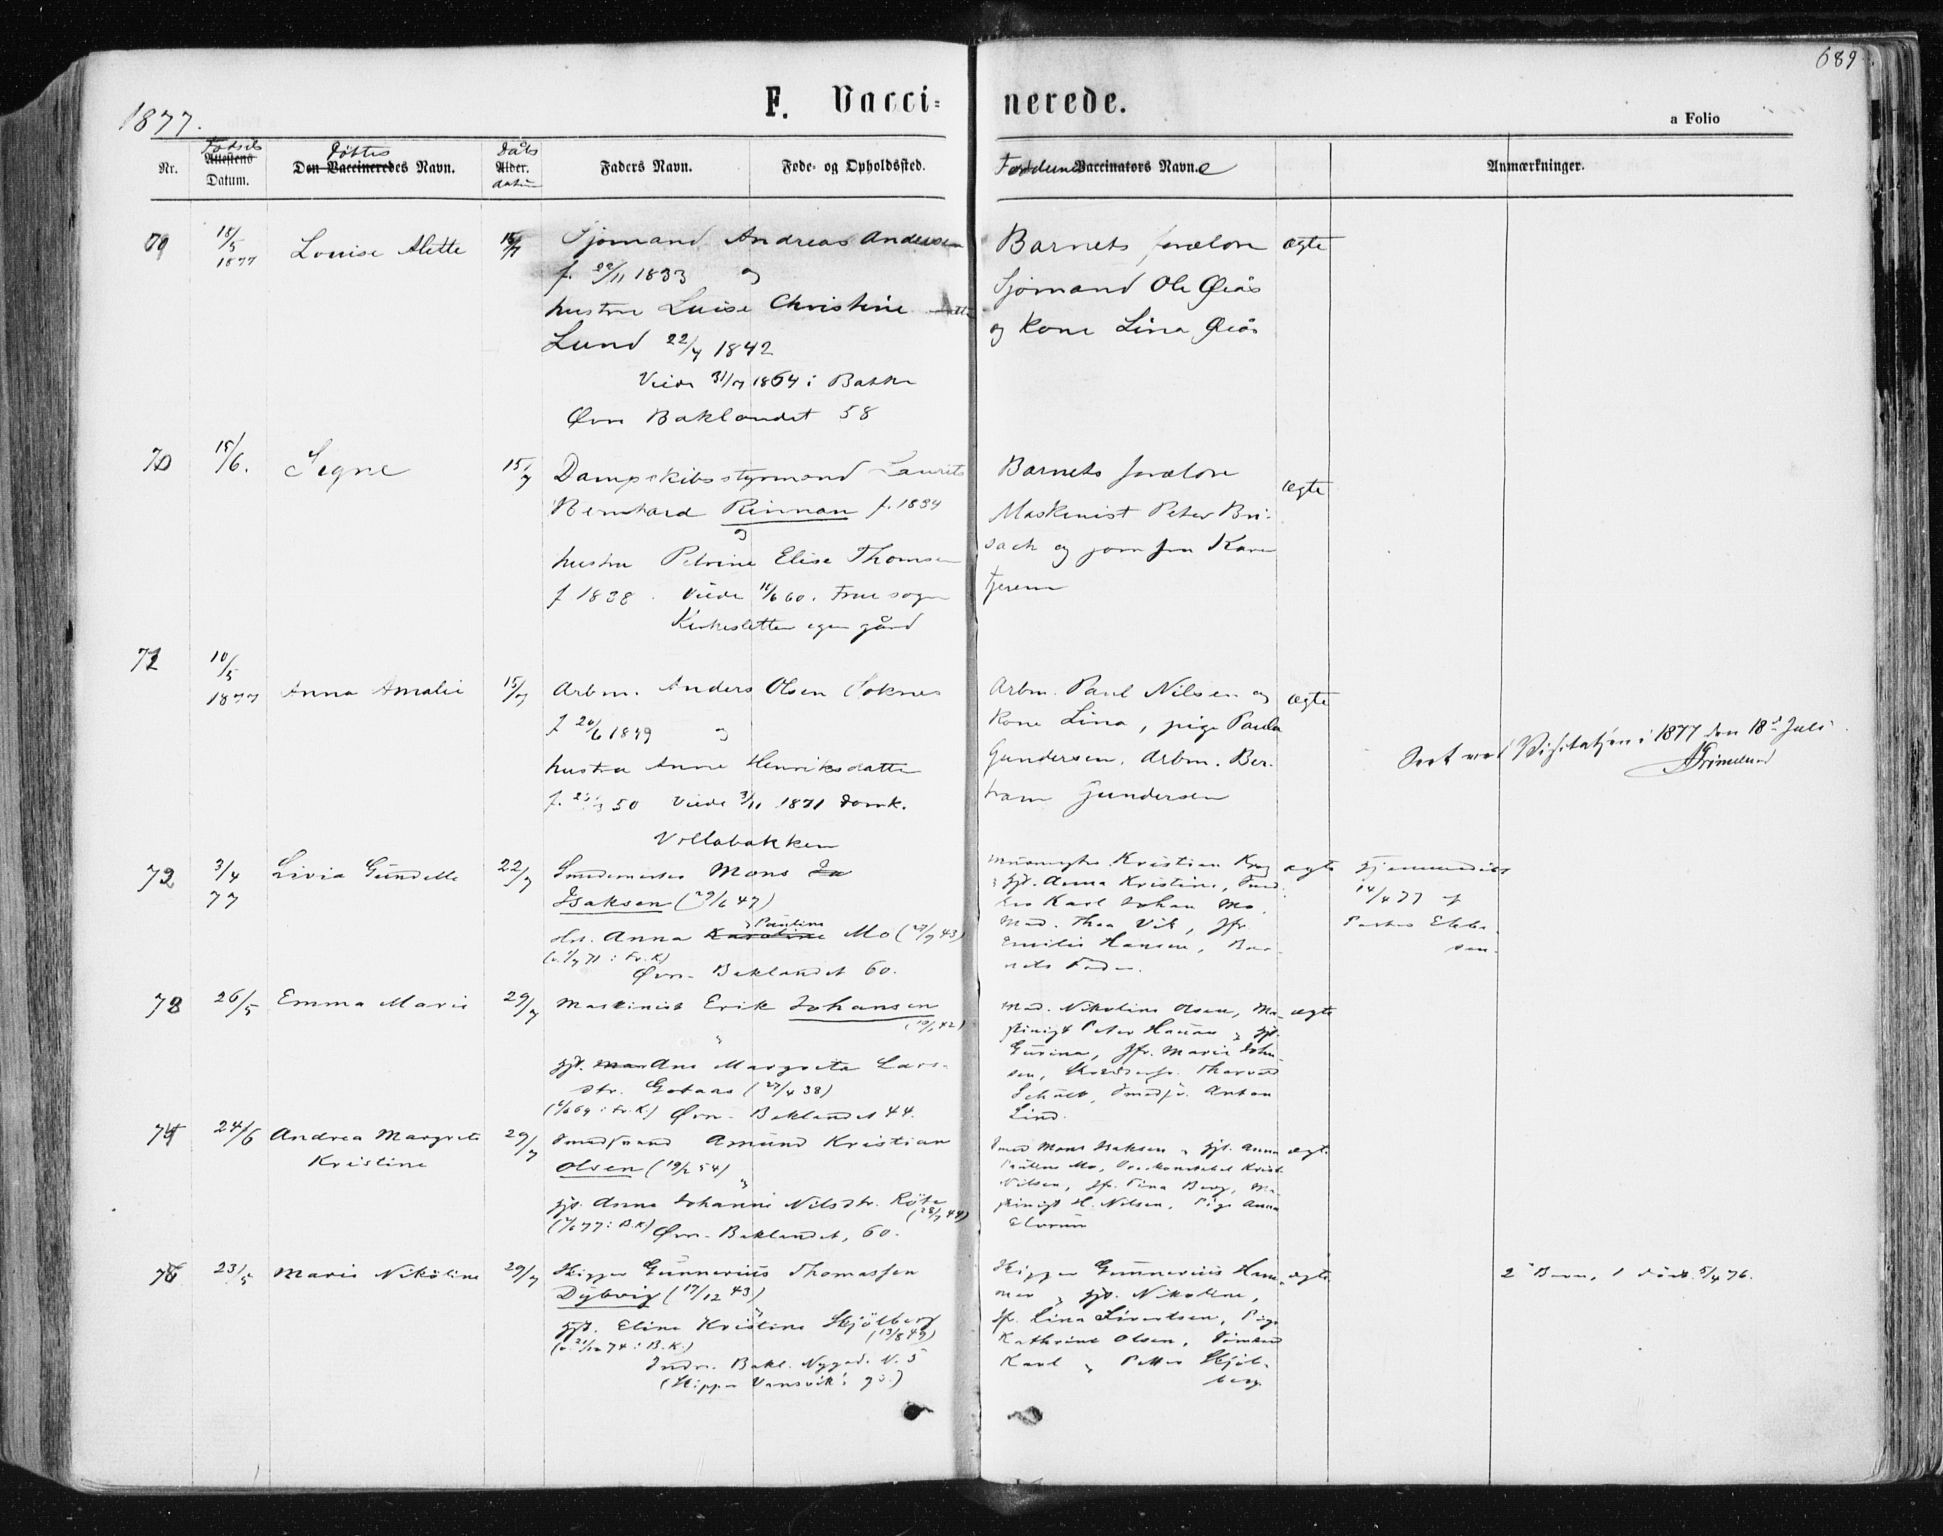 689
1877.
F. Vacci=
nerede.
a Folio
Nr.
Fødsels
Attestens
Datum.
Døttes
Den Vaccineredes Navn.
Dåbs
Alder.
datum
Faders Navn.
Føde- og Opholdssted.
Faddernes
Vaccinators Navne
Anmærkninger.
15/5
1877
Louise Alette
15/7
Sjömand Andreas Andersen
f. 22/11 1833 og
hustru Luise Christine
Lund 22/7 1842
Viede 31/7 1864 i Bakke
Øvre Baklandet 58
Barnets forældre
Sjömand Ole Øiås
og kone Lina Øiås
ægte
70
15/6.
Signe
15/7
Dampskibsstyrmand Laurits
Bernhard Rinnan f. 1834
og
hustru Petrine Elise Thomsen
f 1838. Viede 11/6 60. Frue sogn
Kirkesletten egen gård
Barnets forældre
Maskinist Peter Bri-
sach og jomfru Karen
ægte
71
10/5
1877
Anna Amalie
15/7
Arbm. Anders Olsen Soknes
f 20/6 1849 og
hustru Anne Henriksdatter
50 Viede 3/11 1871 Domk.
Vollabakken
Arbm. Paul Nilsen og
kone Lina, pige Paula
Gundersen. Arbm. Ber-
tram Gundersen
ægte
Seet ved Visitatsen i 1877 den 18de Juli
Grimelund
72
3/4
77
Livia Gundelle
22/7
Smedemester Mons Is
Isaksen (29/6 47)
Pauline
Hst. Anna Karoline Mo (27/7 43)
71: Fr. K)
Øvr. Baklandet 60.
Kristian
Anna Kristine,
Karl Johan Mo,
Mad. Thea Vik, Jfr.
Emilie Hansen, Bar-
nets Fader.
ægte
Hjemmedøbt
14/4 77 af
Pastor Ebbe-
sen.
73
26/5
Emma Marie
29/7
Maskinist Erik Johansen
(19/1 42)
Hst. Mar Ane Margreta Lars-
dtr. Gotaas (27/4 38)
69: Fr. K.) Øvr. Baklandet 44.
Mad. Nikoline Olsen, Ma-
skinist Peter Hansen & Hst.
Gurina, Jfr. Marie John-
sen, Skrædersv. Thorvald
Schult, Smedsv. Anton
Lind.
ægte
74
24/6
Andrea Margrete
Kristine
29/7
Smedsvend Amund Kristian
Olsen (19/2 54)
&
Hst. Anna Johanne Nilsdtr. Röte
(28/7 44)
77: B.K) Øvr. Baklandet, 60.
Smed Mons Isaksen & Hst. Anna
Pauline Mo, Krist.
Nilsen, Jfr. Tina Berg, Ma-
skinist H. Nilsen, Pige Anna
ægte
23/5
Marie Nikoline
29/7
Skipper Gunnerius Thomassen
Dybvig (17/12 43)
&
Hst. Eline Kristine Skjölberg
(13/8 49)
74: B.K.)
Indr. Bakl. Nygad. N. 5
(Skipper Vansvik's gd.)
Skipper Gunnerius Ham-
mer & Hst. Nikoline,
Jfr. Lina Sivertsen, Pige
Kathrine Olsen, Tömmermd
Karl & Petter Skjöl-
berg.
ægte
2det Barn, 1 født 5/4 76.